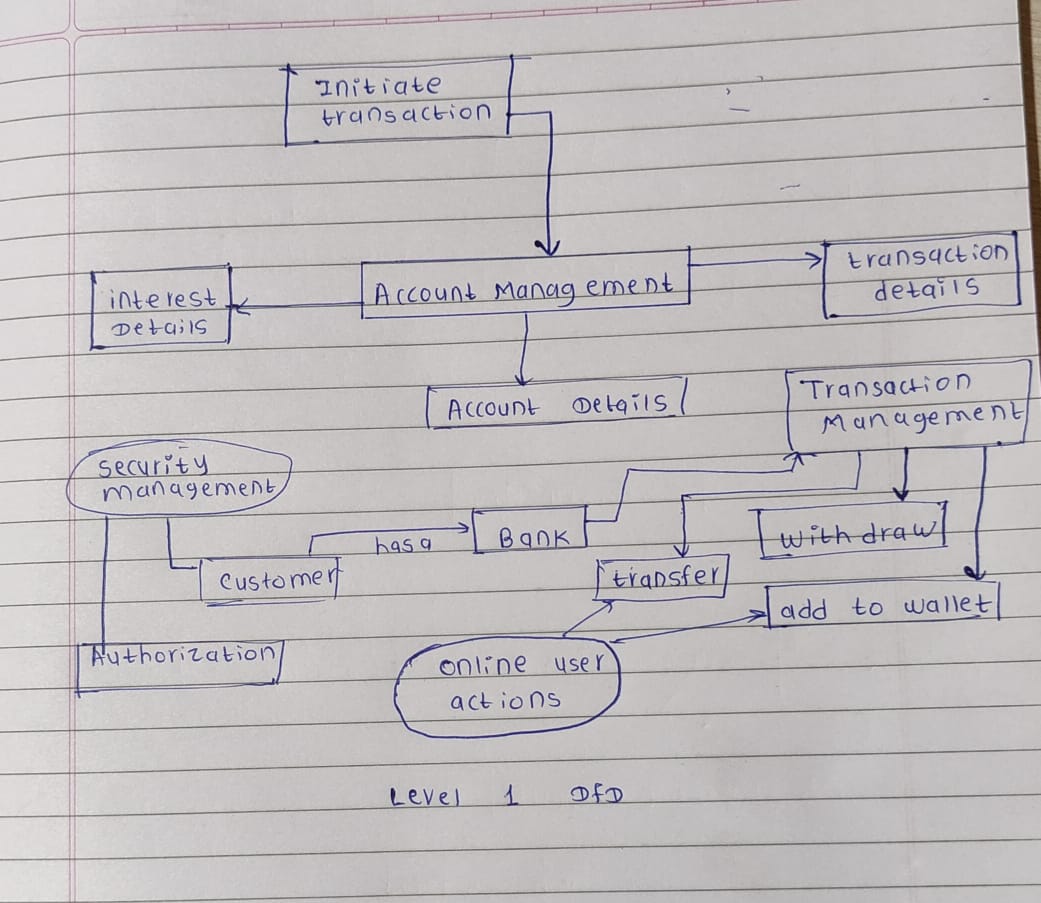 Initiate
transaction
transaction
details
Account Management
interest
Details
Account Details
Transaction
Management
security
management
has a
Bank
withdraw
customer
transfer
add to wallet
Authorization
online user
actions
Level 1 DfD